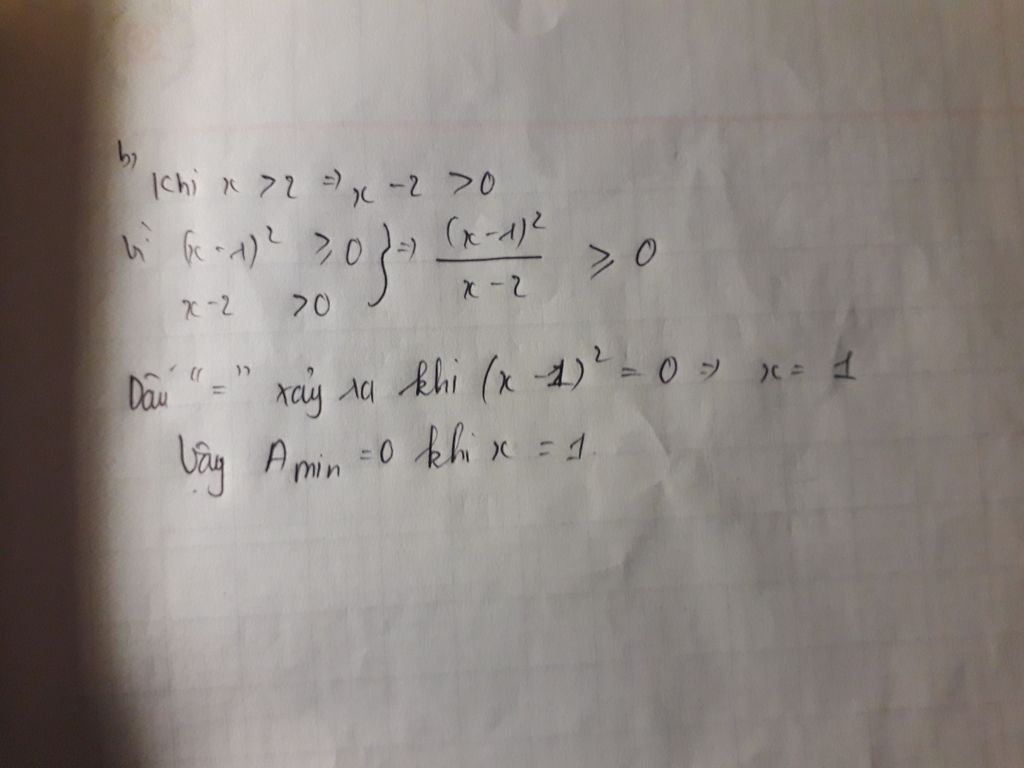 b,
Khi x > 2 => x - 2 > 0
Vì (x-1)² ≥ 0 } => (x-1)² / x-2 ≥ 0
x-2 > 0
Dấu "=" xảy ra khi (x-1)² = 0 => x = 1
Vậy A min = 0 khi x = 1.